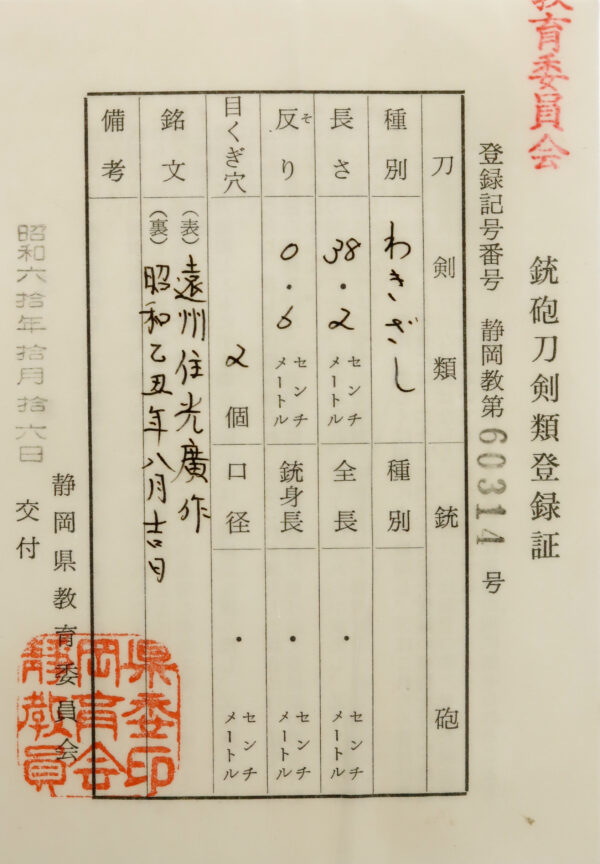 教育委員会
銃砲刀剣類登録証
登録記号番号 静岡教第60314号
刀剣類 銃砲
種別 わきざし 種別
長さ 38.2センチメートル 全長 ・センチメートル
反り(そ) 0.6センチメートル 銃身長 ・センチメートル
目くぎ穴 2個 口径 ・センチメートル
銘文 (表)遠州住光廣作
(裏)昭和乙丑年八月吉日
備考
昭和六拾年拾月拾六日 交付
静岡県教育委員会
県委印
岡育会
静教員